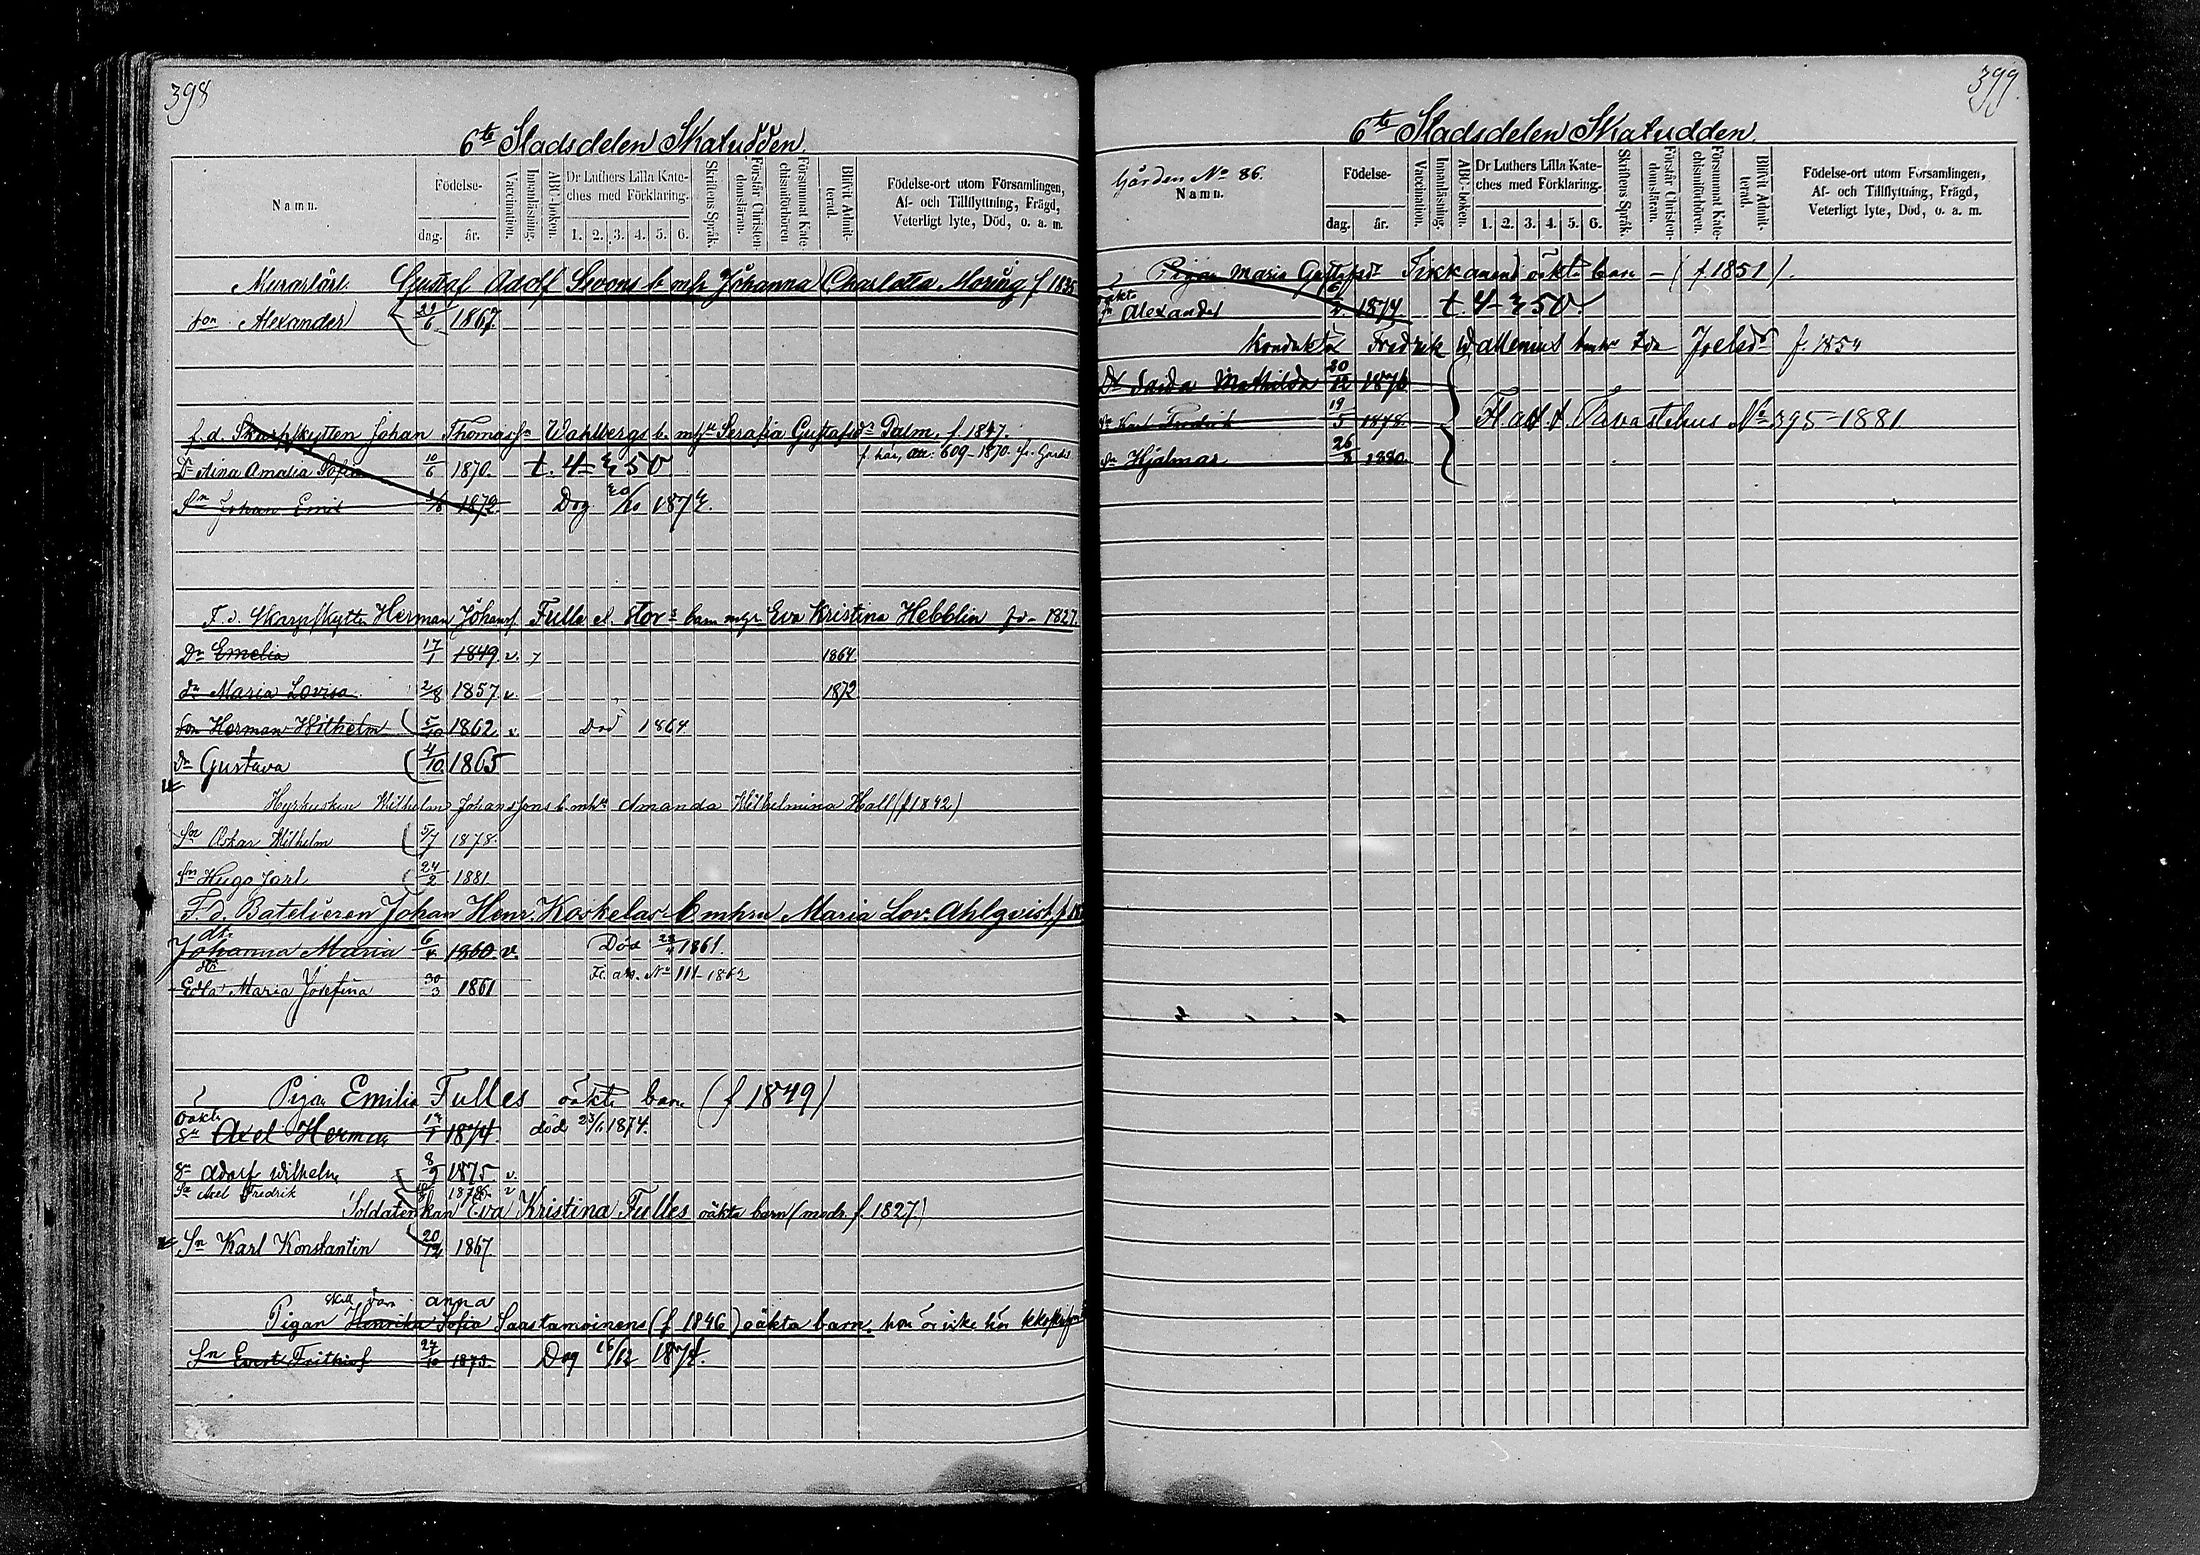 398
6te Stadsdelen Skatudden.
Namn.
Födelse-
dag. år.
Vaccination.
Innanläsning.
ABC-boken.
Dr Luthers Lilla Kateches med Förklaring.
1. 2. 3. 4. 5. 6.
Skriftens Språk.
Förstår Christendomsläran.
Försummat Katechismiförhören
Blifvit Admitterad.
Födelse-ort utom Församlingen,
Af- och Tillflyttning, Frägd,
Veterligt lyte, Död, o. a. m.
Gustaf Adolf Svons b. mhr Johanna Charlotta Moring f 1835
son Alexander 29/6 1867.
f. d. Skarpskytten Johan Thomasson Wahlbergs b. mhr Serafia Gustafsdr Palm. f 1847.
Dr Aina Amalia Sofia 10/6 1870. t. 4 = 50
609-1870.
Sn Johan Emil 1/6 1872. Dog 20/10 1872.
F. d. Skarpskytte Herman Johanss. Fulle el. Stors barn m. Eva Kristina Hebblin fd. 1827.
Dr Emelia 17/1 1849. v. 1864.
dr Maria Lovisa 2/8 1857. v 1872
Son Herman Wilhelm 5/10 1862 v. Död 1864
Dr Gustava 4/10 1865
Hyrkusken Wilhelm Johanssons b. mhr Amanda Wilhelmina Hall (f 1842)
Sn Oskar Wilhelm 5/7 1878.
Sn Hugo Jarl 24/2 1881.
F. d. Batelieren Johan Henr. Koskelas b mhru Maria Lov. Ahlqvist,
dtr
Johanna Maria 6/4 1860. v. Död 1861.
dtr Fl. No 111-1862
Edla Maria Josefina 30/3 1861
Pigan Emilia Fulles oäkta barn (f 1849)
oäkta
Sn Axel Herman 1874. död 23/1 1874.
Sn Adolf Wilhelm 8/9 1875 v.
Sn Axel Fredrik v
Soldatenkan Eva Kristina Fulles oäkta barn (modr f. 1827)
Sn Karl Konstantin 20/12 1867.
Anna
Pigan Henrika Sofia Saastamoinens (f 1846) oäkta barn.
Sn Evert Frithiof 27/10 1873. Dog 16/12 1874.
399.
6te Stadsdelen Skatudden.
Gården No 86.
Namn.
Födelse-
dag. år.
Vaccination.
Innanläsning.
ABC-boken.
Dr Luthers Lilla Kateches med Förklaring.
1. 2. 3. 4. 5. 6.
Skriftens Språk.
Förstår Christendomsläran.
Försummat Katechismiförhören.
Blifvit Admitterad.
Födelse-ort utom Församlingen,
Af- och Tillflyttning, Frägd,
Veterligt lyte, Död, o. a. m.
Pigan Maria Gustafsdr Tikkanens oäkta barn - (f. 1851).
oäkta
Sn Alexander 1874. t. 4 = 50.
Konduktör Fredrik Wallenius bmhr Ida Joelsdr f. 1854
Dr Saida Mathilda 30/12 1876
Sn Karl Fredrik 19/5 1878. Fl. att t. Tavastehus No 395-1881
Sn Hjalmar 26/8 1880.